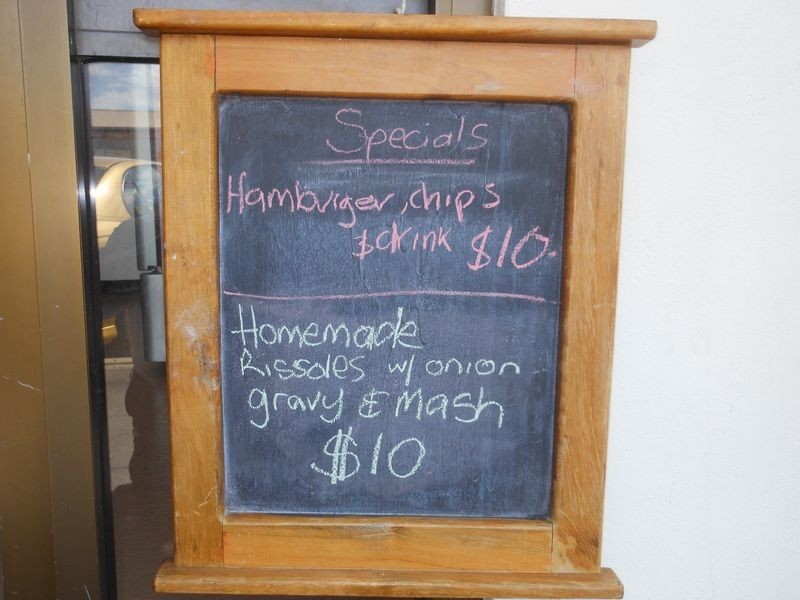 Specials
Hamburger, chips
& drink $10.
Homemade
Rissoles w/ onion
gravy & mash
$10